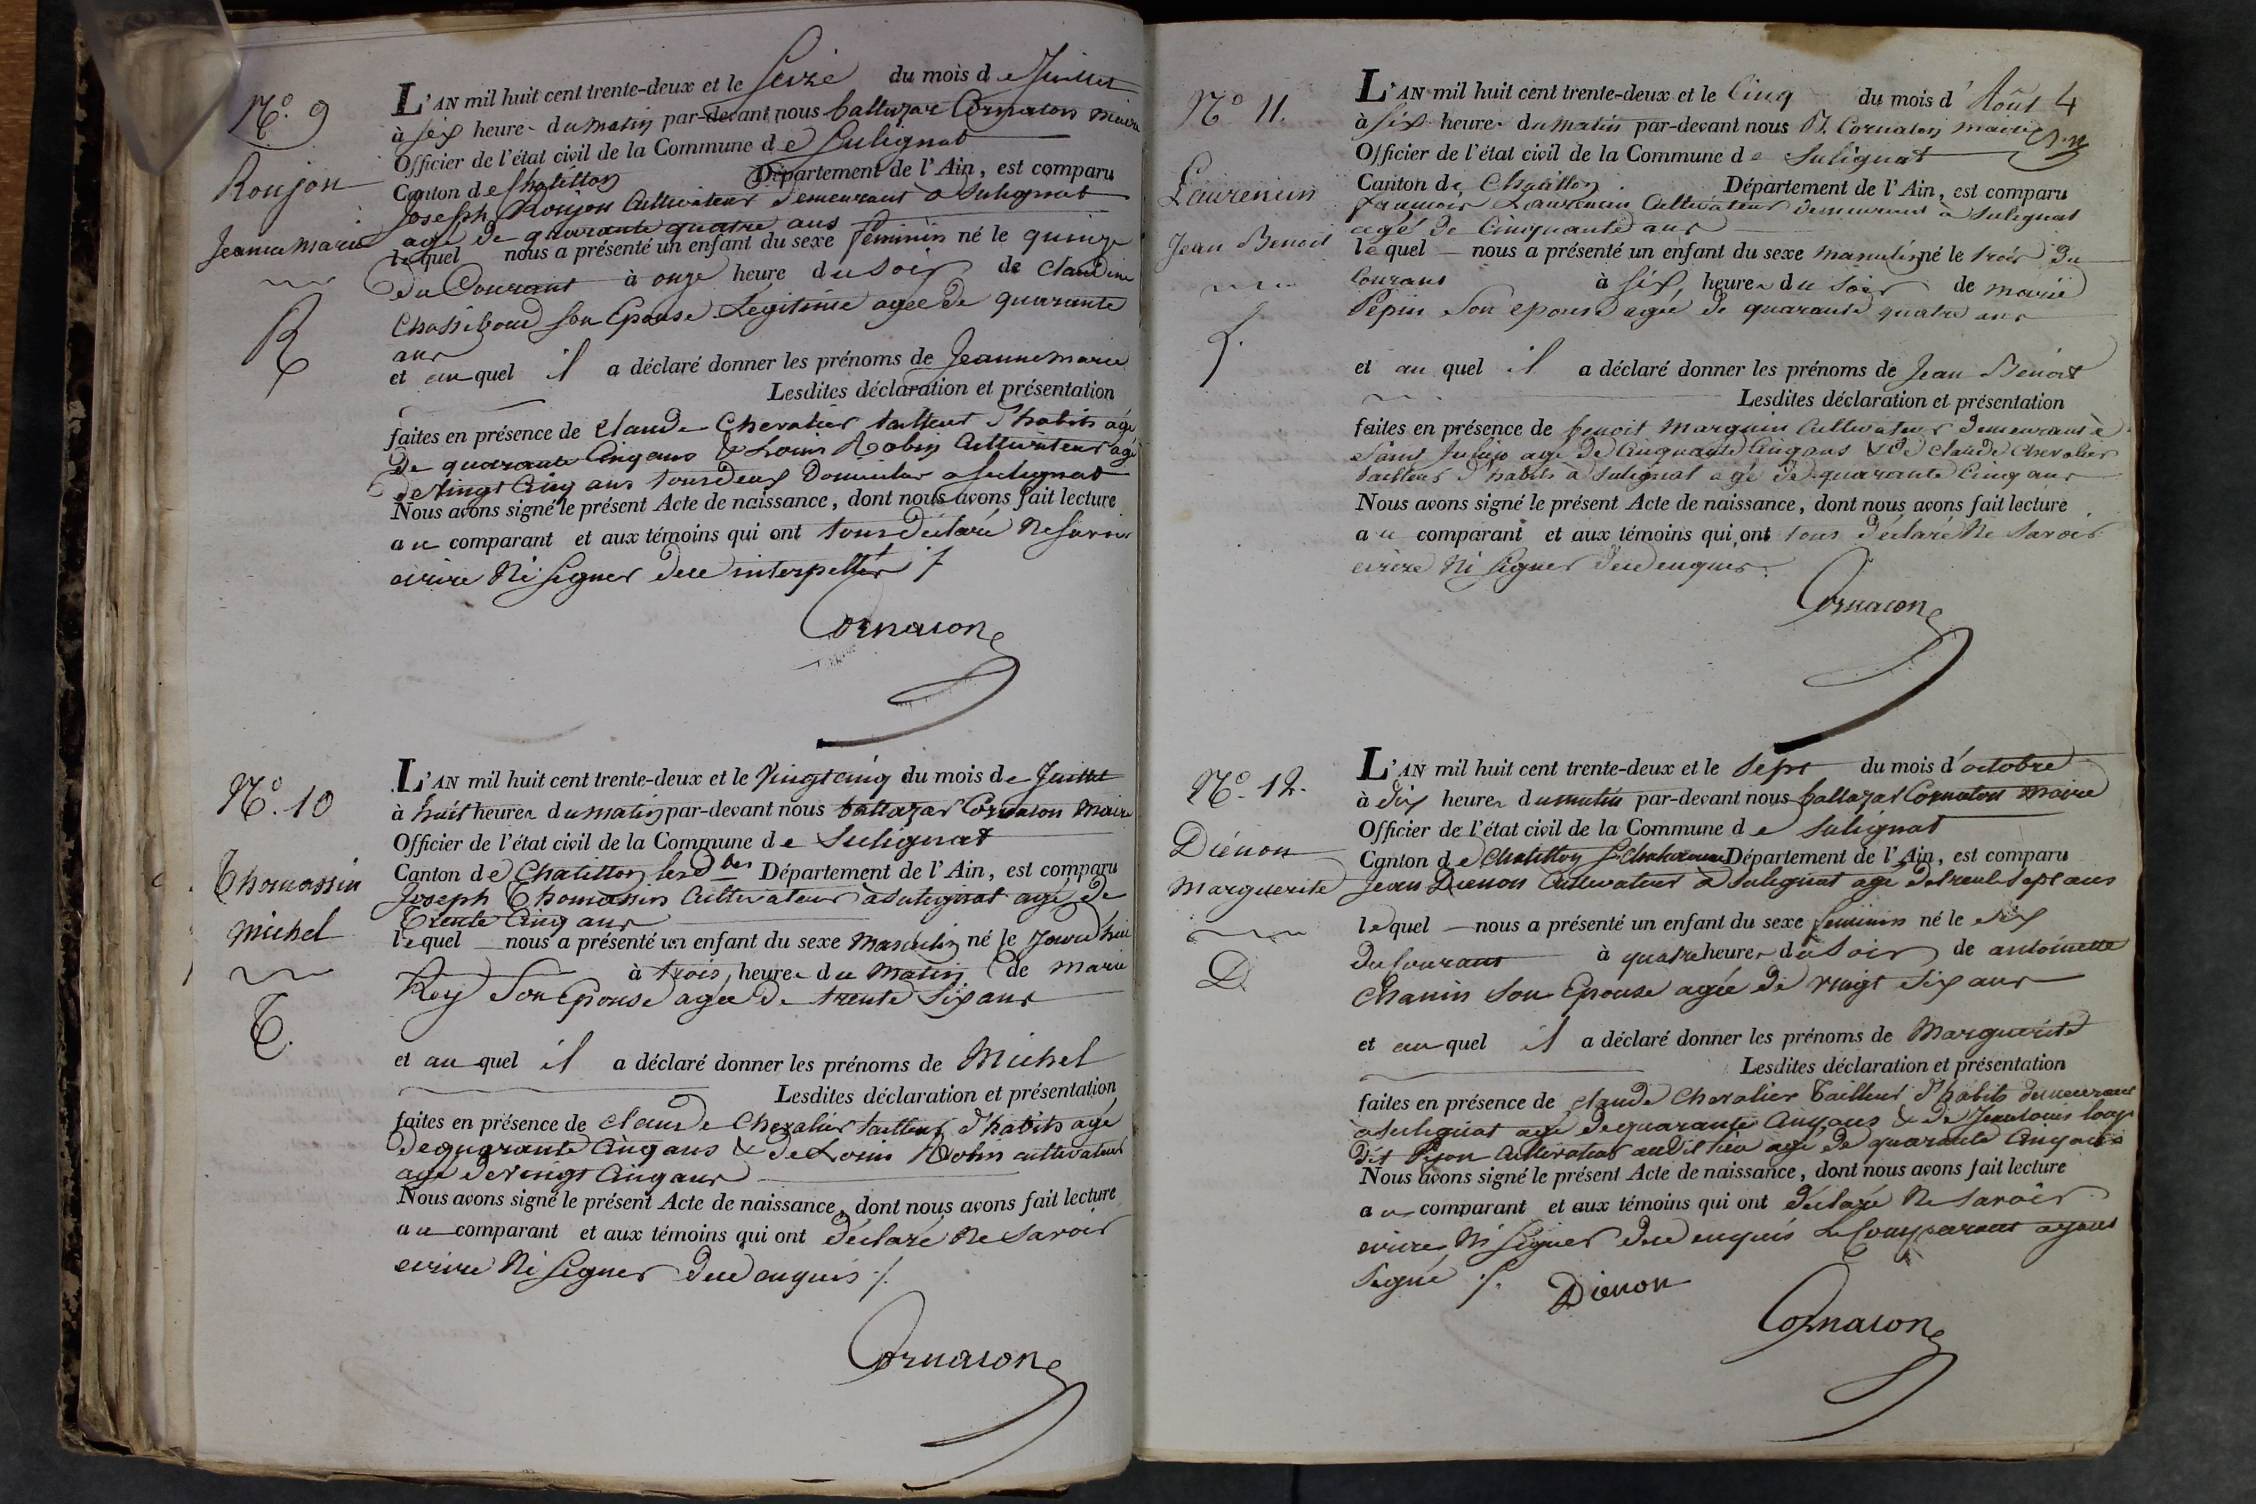 N.° 9
Roujon
Jeanne Marie
R
L'AN mil huit cent trente-deux et le seize du mois de Juillet
à six heures du matin par-devant nous baltazar Cornaton maire
Officier de l'état civil de la Commune de Sulignat
Canton de Chatillon Département de l'Ain, est comparu
Joseph Roujon Cultivateur demeurant à Sulignat
agé de quarante quatre ans
lequel nous a présenté un enfant du sexe féminin né le quinze
du Courant à onze heure du soir de claudine
Chassiboud son Epouse Légitime agée de quarante
ans
et au quel il a déclaré donner les prénoms de Jeanne marie
Lesdites déclaration et présentation
faites en présence de claude Chevalier tailleur d'habits agé
de quarante Cinq ans & Louis Robin Cultivateur agé
de Vingt Cinq ans tous deux Domiciliés a Sulignat
Nous avons signé le présent Acte de naissance, dont nous avons fait lecture
au comparant et aux témoins qui ont tous Déclaré Ne savoir
ecrire Ni signer de ce interpellés
Cornaton
N.° 10
Thomassin
Michel
T.
L'AN mil huit cent trente-deux et le Vingt cinq du mois de Juillet
à huit heures du matin par-devant nous baltazar Cornaton Maire
Officier de l'état civil de la Commune de Sulignat
Canton de Chatillon les D.bes Département de l'Ain, est comparu
Joseph Thomassin Cultivateur à Sulignat agé de
Trente Cinq ans
lequel nous a présenté un enfant du sexe Masculin né le Jourd'hui
à trois heures du Matin de marie
Rey Son Epouse agée de trente Six ans
et au quel il a déclaré donner les prénoms de Michel
Lesdites déclaration et présentation
faites en présence de claude Chevalier tailleur d'habits agé
de quarante Cinq ans & de Louis Robin cultivateur
agé de Vingt Cinq ans
Nous avons signé le présent Acte de naissance, dont nous avons fait lecture
au comparant et aux témoins qui ont déclaré Ne Savoir
ecrire Ni signer de ce enquis
Cornaton
N.° 11.
Laurencin
Jean Benoit
L.
L'AN mil huit cent trente-deux et le Cinq du mois d'Août 4
à six heures du matin par-devant nous B. Cornaton maire
Officier de l'état civil de la Commune de Sulignat
Canton de Chatillon Département de l'Ain, est comparu
francois Laurencin Cultivateur demeurant à Sulignat
agé de Cinquante ans
lequel nous a présenté un enfant du sexe masculin né le trois du
Courant à six heures du soir de marie
Pepin Son epouse agée de quarante quatre ans
et au quel il a déclaré donner les prénoms de Jean Benoit
Lesdites déclaration et présentation
faites en présence de benoit Marguin Cultivateur demeurant à
Saint Julien agé de Cinquante Cinq ans & de claude Chevalier
tailleur d'habits à Sulignat agé de quarante Cinq ans
Nous avons signé le présent Acte de naissance, dont nous avons fait lecture
au comparant et aux témoins qui ont tous déclaré Ne Savoir
ecrire Ni signer de ce enquis.
Cornaton
N.° 12.
Diénon
Marguerite
D
L'AN mil huit cent trente-deux et le Sept du mois d'octobre
à dix heures du matin par-devant nous baltazar Cornaton Maire
Officier de l'état civil de la Commune de Sulignat
Canton de Chatillon S. Chalaronne Département de l'Ain, est comparu
Jean Dienon Cultivateur à Sulignat agé de trente Sept ans
lequel nous a présenté un enfant du sexe féminin né le Six
du Courant à quatre heures du Soir de antoinette
Chanin Son Epouse agée de Vingt Six ans
et au quel il a déclaré donner les prénoms de Marguerite
Lesdites déclaration et présentation
faites en présence de claude Chevalier Tailleur d'habits demeurant
à Sulignat agé de quarante Cinq ans & de Jean Louis
dit Pijon Cultivateur audit lieu agé de quarante Cinq ans
Nous avons signé le présent Acte de naissance, dont nous avons fait lecture
au comparant et aux témoins qui ont déclaré Ne Savoir
ecrire Ni signer de ce enquis Le Comparant ayant
Signé
Dienon
Cornaton